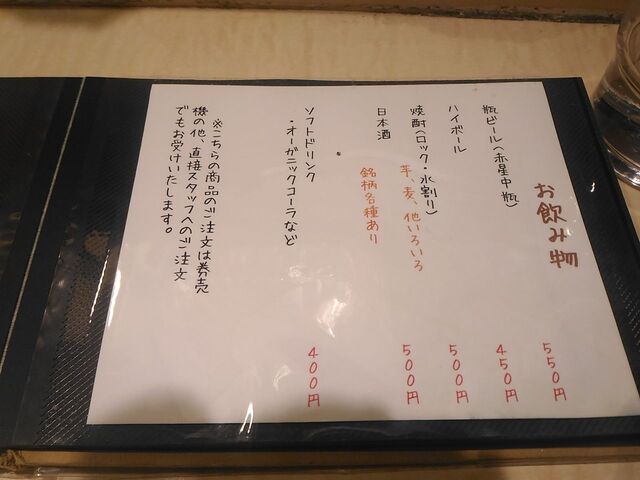 お飲み物 550円
瓶ビール(赤星中瓶) 450円
ハイボール 500円
焼酎(ロック・水割り) 500円
芋、麦、他いろいろ
日本酒
銘柄各種あり
ソフトドリンク 400円
・オーガニックコーラなど
※こちらの商品のご注文は券売
機の他、直接スタッフへのご注文
でもお受けいたします。